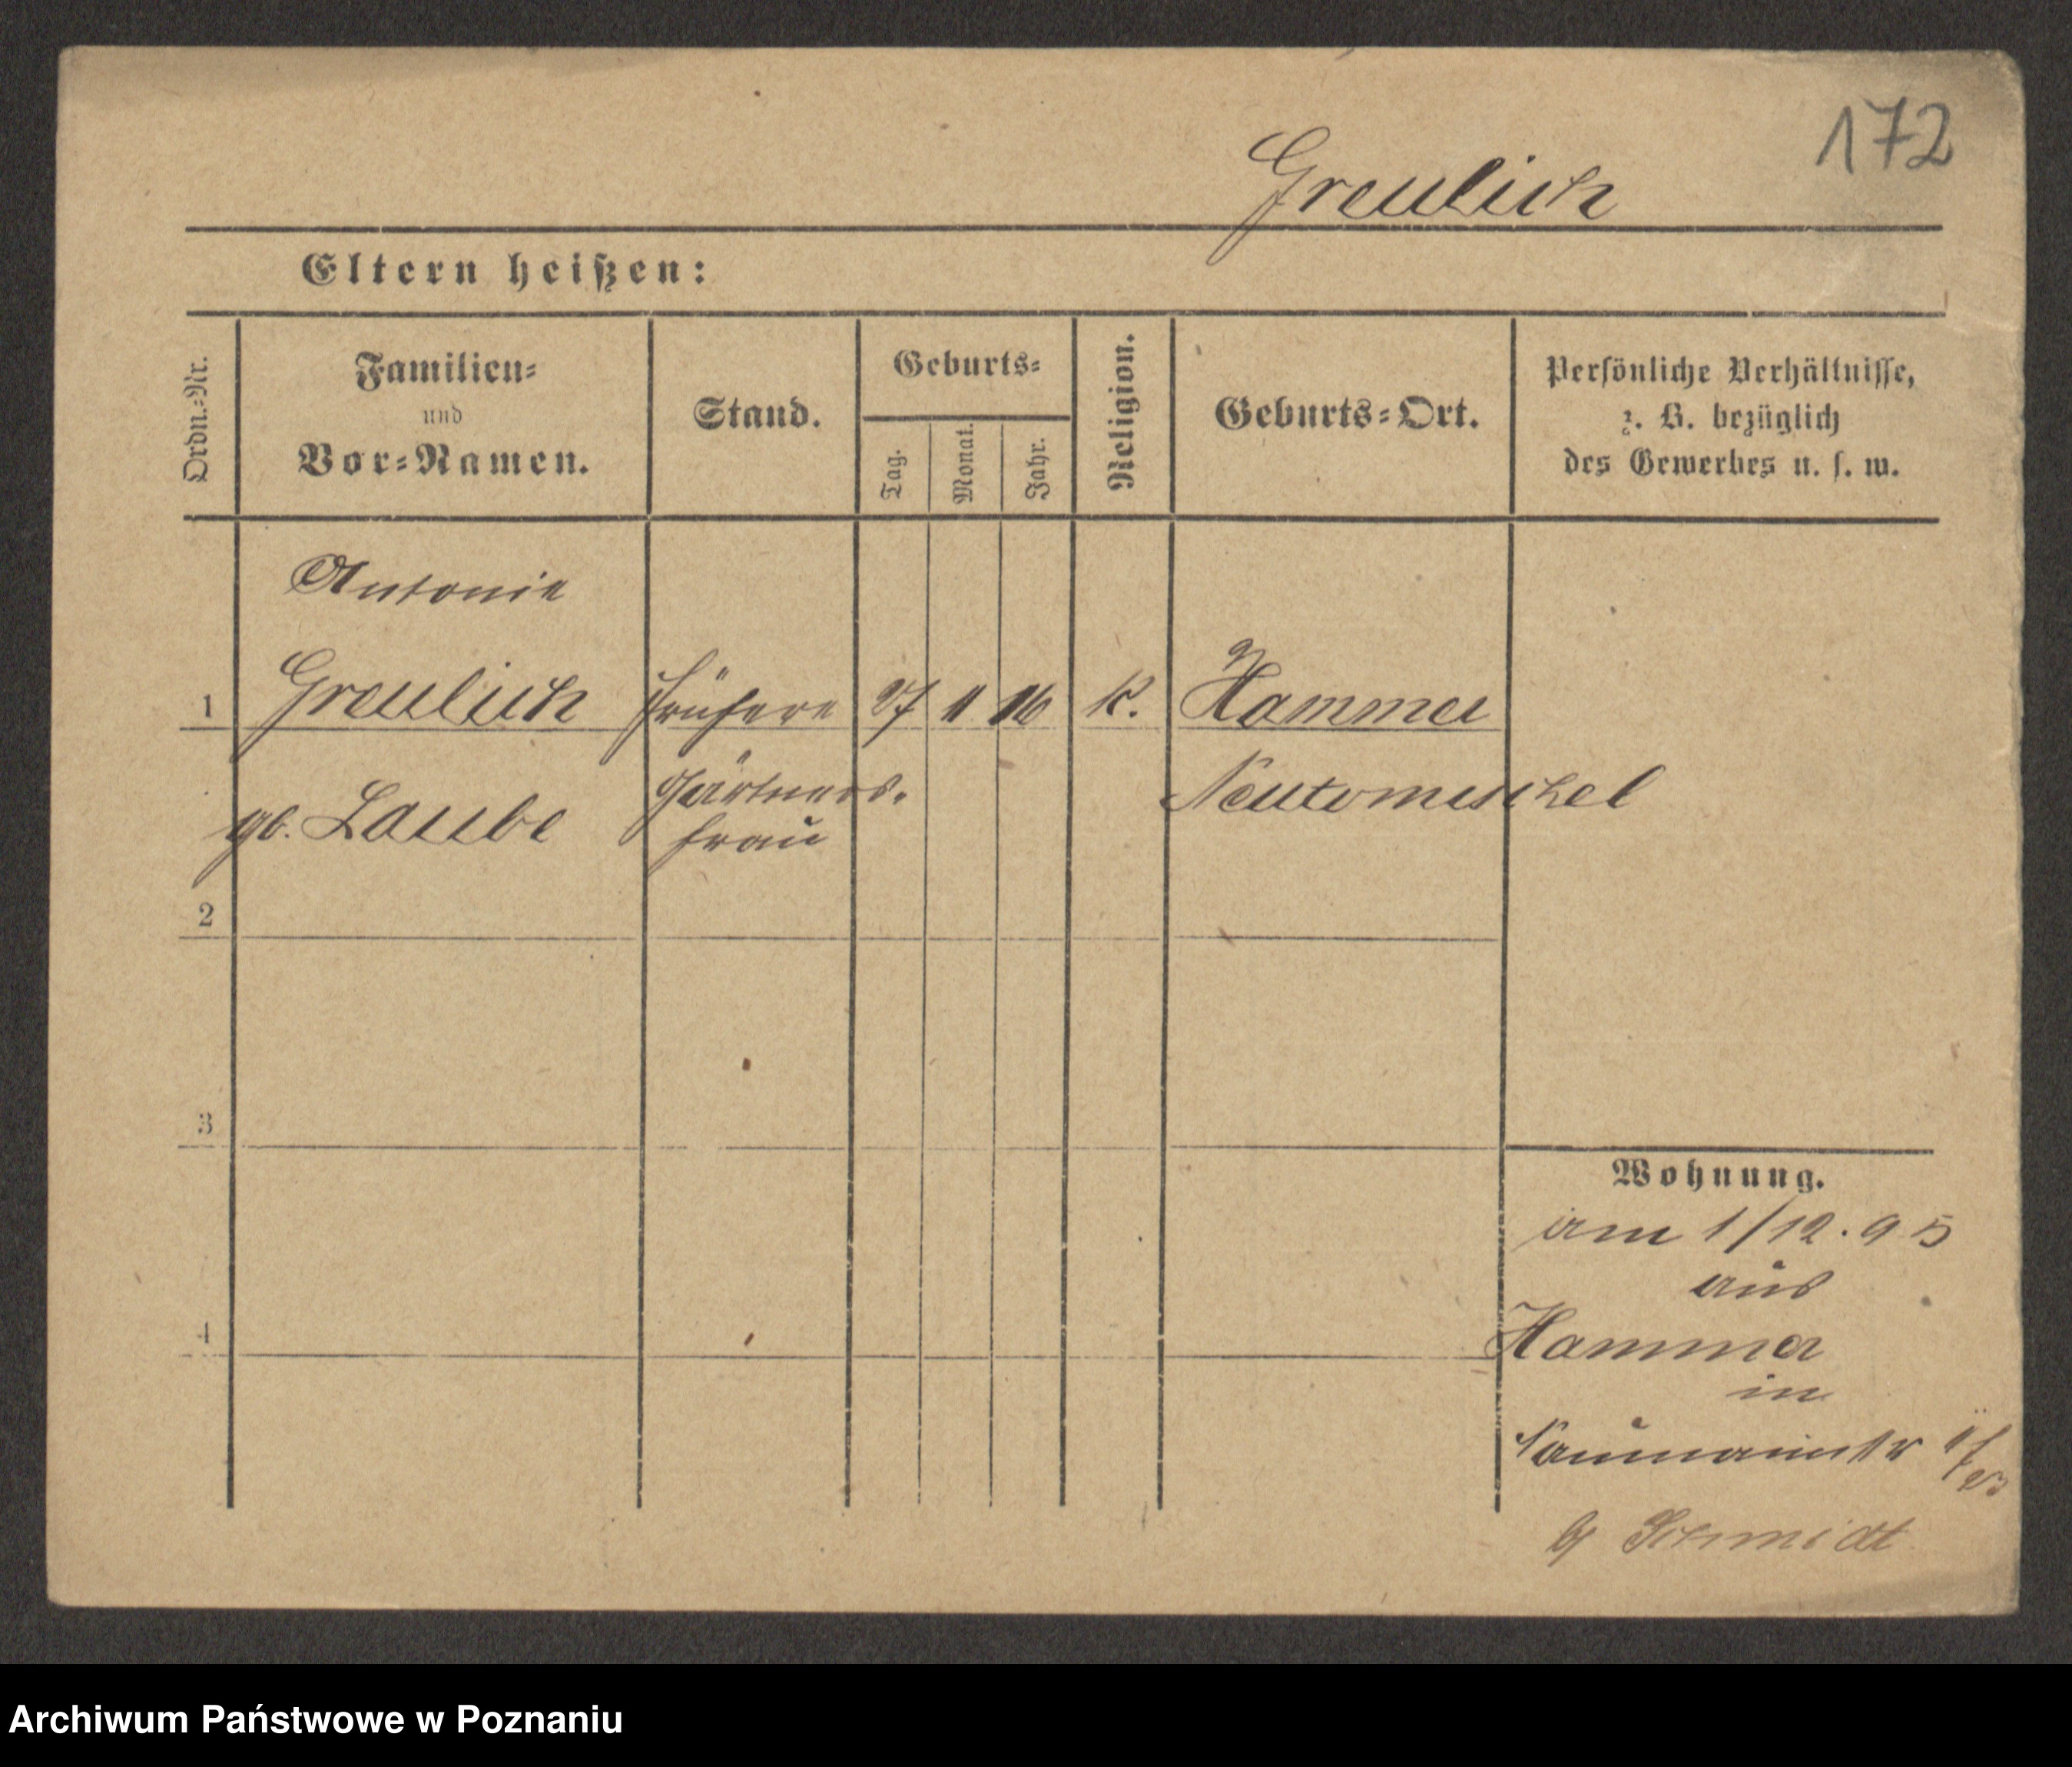 172
Greulich
Eltern heißen:
Ordn.-Nr.
Familien-
und
Vor-Namen.
Stand.
Geburts-
Tag.
Monat.
Jahr.
Religion.
Geburts-Ort.
Persönliche Verhältnisse,
z. B. bezüglich
des Gewerbes u. s. w.
Antonie
1 Greulich frühere 27 11 16 K. Hammer
gb. Laube Gärtners-
frau
Neutomischel
2
3
4
Wohnung.
am 1/12. 95
aus
Hammer
in
Naumannstr
b/ Schmidt
Archiwum Państwowe w Poznaniu